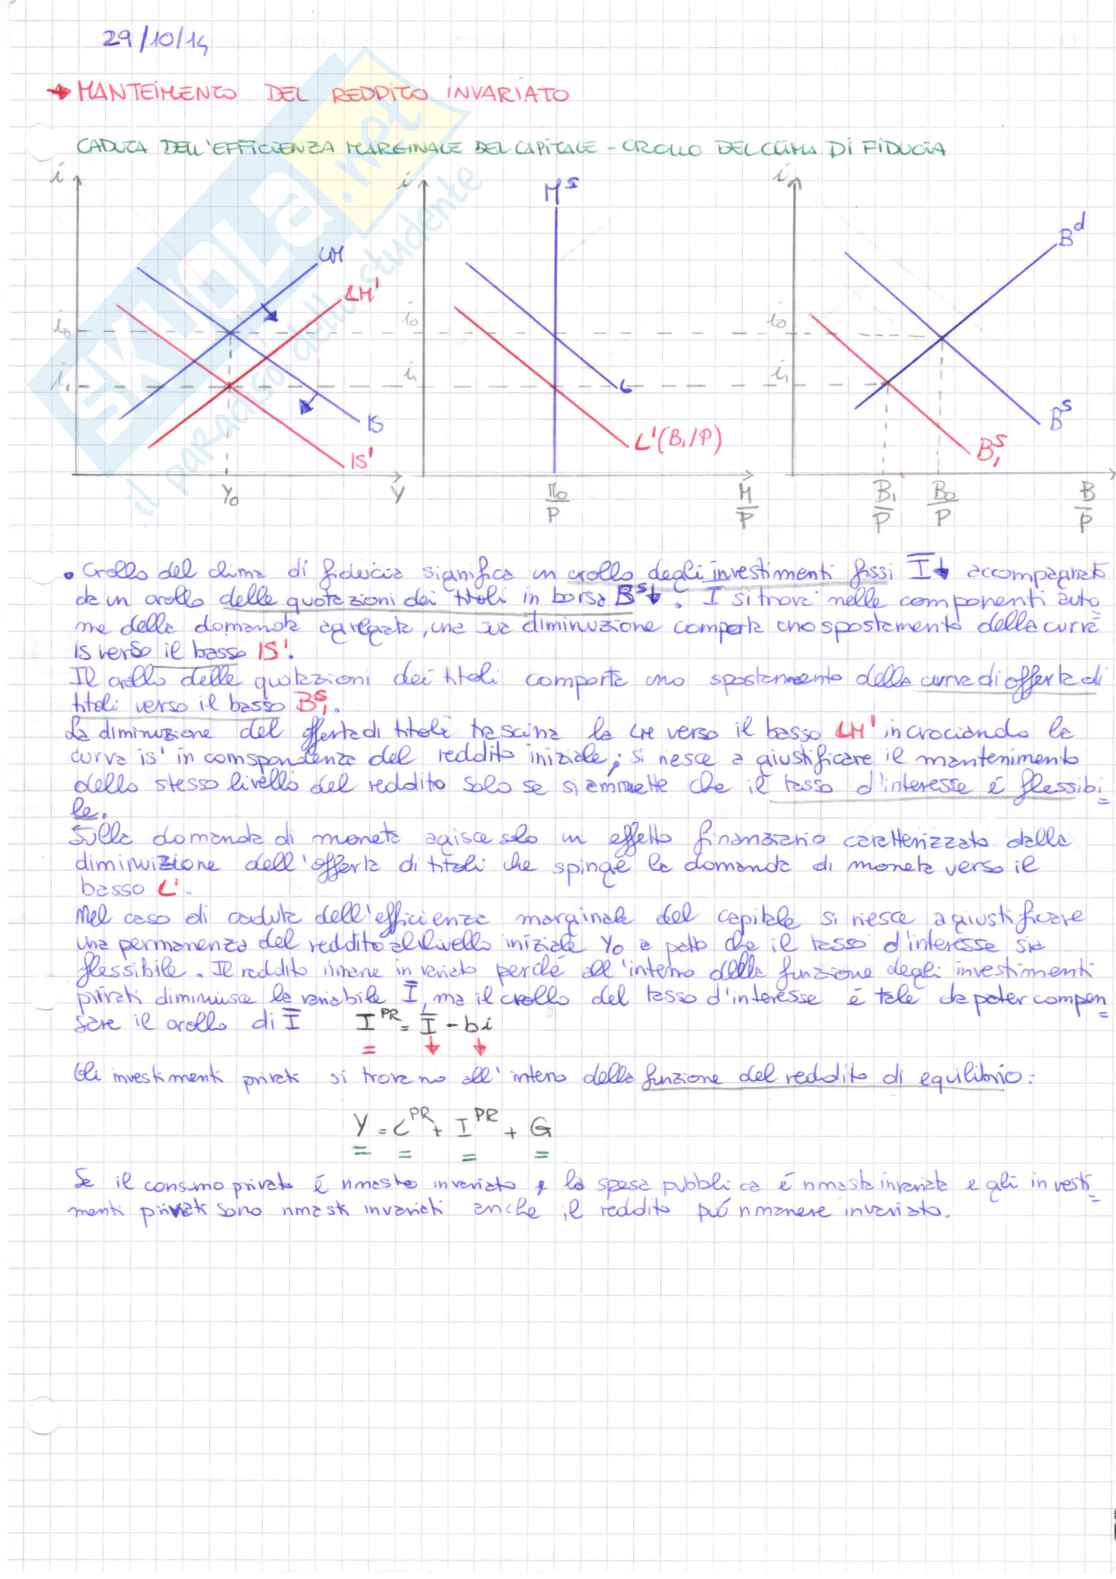 29/10/14
→ MANTEIMENTO DEL REDDITO INVARIATO
CADUTA DELL'EFFICIENZA MARGINALE DEL CAPITALE - CROLLO DEL CLIMA DI FIDUCIA
i i M^s i
B^d
LM
LM'
i₀ i₀ i₀
i₁ i₁ i₁
L
IS B^s
IS' L'(B₁/P) B₁^s
Y₀ Y M₀/P M/P B₁/P B₀/P B/P
SKUOLA.net
il paradiso dello studente
• Crollo del clima di fiducia significa un crollo degli investimenti fissi Ī↓ accompagnato
da un crollo delle quotazioni dei titoli in borsa B^s↓. I si trova nelle componenti auto
me della domanda agregata, una sua diminuzione comporta uno spostamento della curva
IS verso il basso IS'.
Il crollo delle quotazioni dei titoli comporta uno spostamento della curva di offerta di
titoli verso il basso B₁^s.
La diminuzione del offerta di titoli trascina la LM verso il basso LM' incrociando la
curva is' in corrispondenza del reddito iniziale; si riesce a giustificare il mantenimento
dello stesso livello del reddito solo se si ammette che il tasso d'interesse é flessibi-
le.
Sulla domanda di moneta agisce solo un effetto finanziario caratterizzato dalla
diminuizione dell'offerta di titoli che spinge la domanda di moneta verso il
basso L'.
Nel caso di caduta dell'efficienza marginale del capitale si riesce a giustificare
una permanenza del reddito al livello iniziale Y₀ a patto che il tasso d'interesse sia
flessibile. Il reddito rimane invariato perché all'interno della funzione degli investimenti
privati diminuisce la variabile Ī, ma il crollo del tasso d'interesse é tale da poter compen=
sare il crollo di Ī I^PR = Ī - bi
Gli investimenti privati si trovano all'interno della funzione del reddito di equilibrio:
Y = C^PR + I^PR + G
Se il consumo privato é rimasto invariato, la spesa pubblica é rimasta invariata e gli investi=
menti privati sono rimasti invariati anche il reddito puó rimanere invariato.